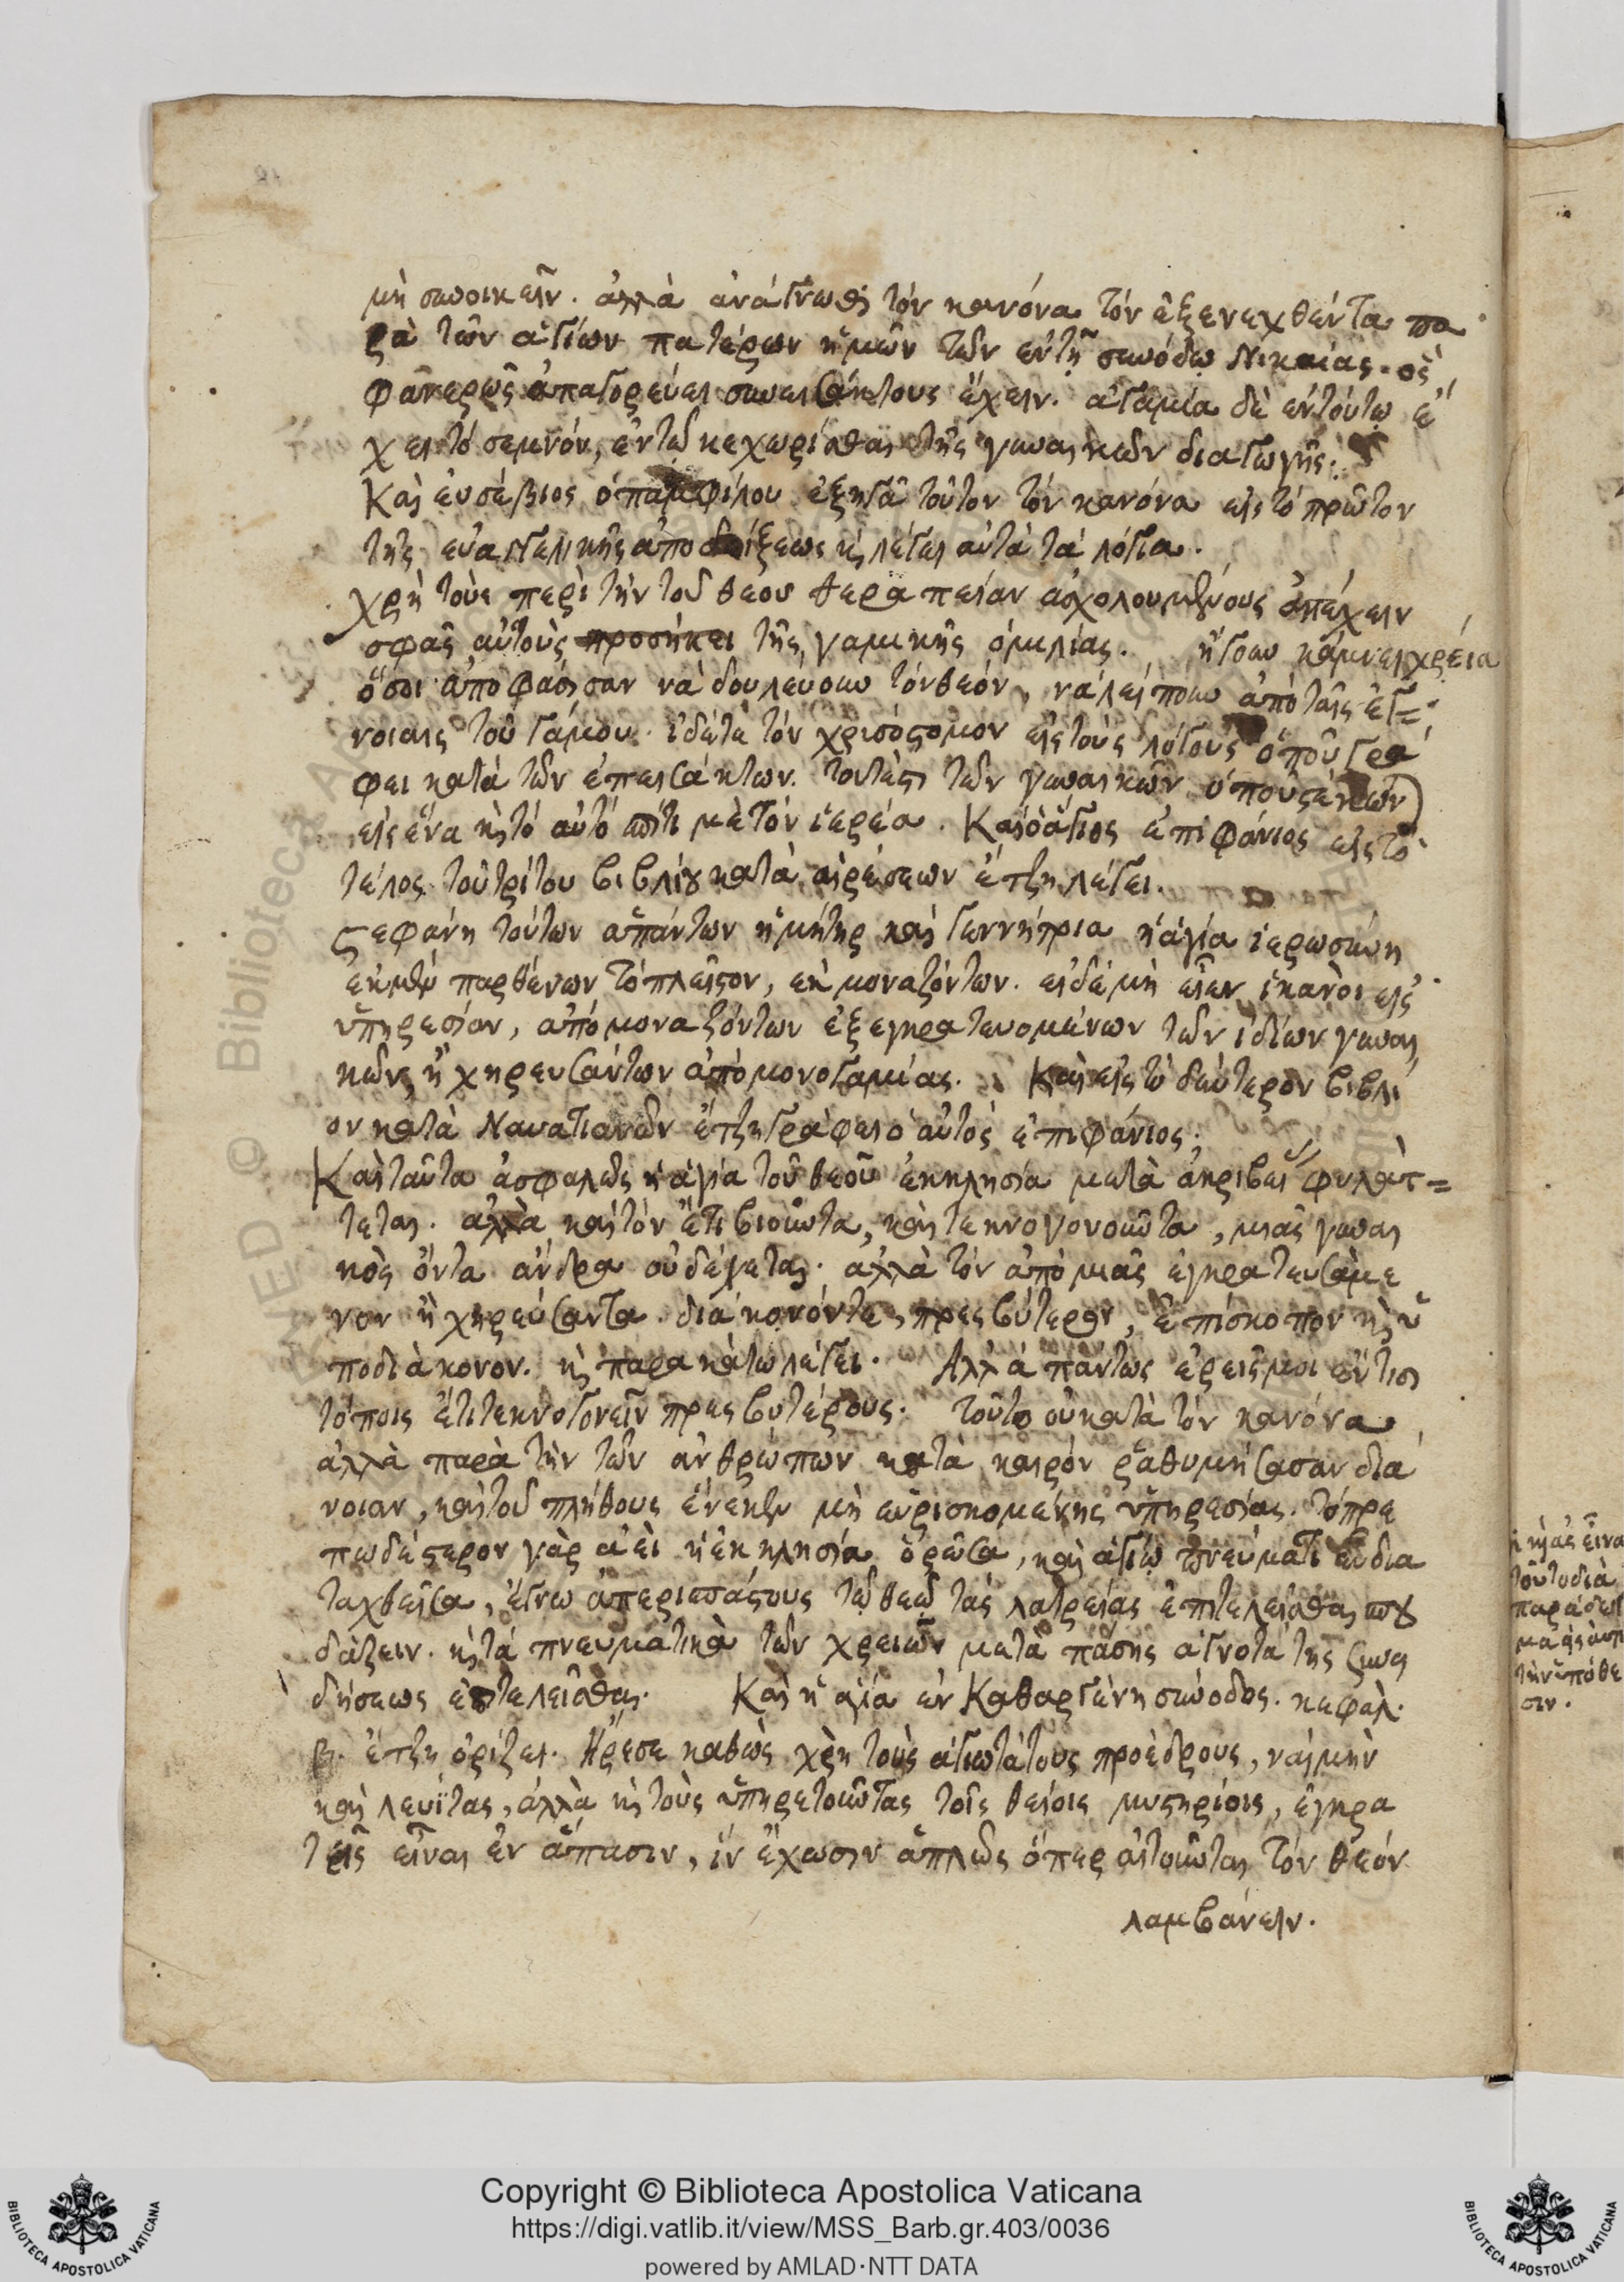 μὴ συνοικεῖν. ἀλλὰ ἀνάγνωθι τὸν κανόνα τὸν ἐξενεχθέντα πα
ρὰ τῶν ἁγίων πατέρων ἡμῶν τῶν ἐν τῇ συνόδῳ Νικαίας. ὃς
φανερῶς ἀπαγορεύει συνεισάκτους ἔχειν. ἀγαμία δὲ ἐν τούτῳ ἔ
χει τὸ σεμνόν, ἐν τῷ κεχωρίσθαι τῆς γυναικῶν διαγωγῆς.
Καὶ ἐυσέβιος ὁ παμφίλου ἐξηγᾶ τοῦτον τὸν κανόνα εἰς τὸ πρῶτον
τῆς εὐαγγελικῆς ἀποδείξεως κὶ λέγει αὐτὰ τὰ λόγια.
χρὴ τοὺς περὶ τὴν τοῦ θεοῦ θεραπείαν ἀσχολουμένους ἀπέχειν
σφᾶς αὐτοὺς προσήκει τῆς γαμικῆς ὁμιλίας. ἤγουν κάμνει χρεία
ὅσοι ἀποφάσισαν νὰ δουλεύσουν τὸν θεόν, νὰ λείπουν ἀπὸ ταῖς ἐγ=
νοιαις τοῦ γάμου. ἰδέτε τὸν χρισόστομον εἰς τοὺς λόγους ὁποῦ γρά
φει κατὰ τῶν ἐπεισάκτων. τουτέστι τῶν γυναικῶν ὁποῦ στέκουν
εἰς ἕνα κὶ τὸ αὐτὸ σπίτι μὲ τὸν ἱερέα. Καὶ ὁ ἅγιος ἐπιφάνιος εἰς τὸ
τέλος τοῦ τρίτου βιβλίου κατὰ αἱρέσεων ἔτζη λέγει.
στεφάνη τούτων ἁπάντων ἡ μήτηρ καὶ γεννήτρια ἡ ἁγία ἱερωσύνη
ἐκ μὲν παρθένων τὸ πλεῖστον, ἐκ μοναζόντων. εἰ δὲ μὴ εἶεν ἱκανοὶ εἰς
ὑπηρεσίαν, ἀπὸ μοναζόντων ἐξ ἐγκρατευομένων τῶν ἰδίων γυναι
κῶν, ἢ χηρευσάντων ἀπὸ μονογαμίας. Καὶ εἰς τὸ δεύτερον βιβλί
ον κατὰ Ναυατιανῶν ἔτζη γράφει ὁ αὐτὸς ἐπιφάνιος.
Καὶ ταῦτα ἀσφαλῶς ἡ ἁγία τοῦ θεοῦ ἐκκλησία μετὰ ἀκριβείας φυλάτ=
τεται. ἀλλὰ καὶ τὸν ἔτι βιοῦντα, καὶ τεκνογονοῦντα, μιᾶς γυναι
κὸς ὄντα ἄνδρα οὐ δέχεται. ἀλλὰ τὸν ἀπὸ μιᾶς ἐγκρατευσάμε
νον ἢ χηρεύσαντα. διάκονόντε, πρεσβύτερον, ἐπίσκοπον κὶ ὑ
ποδιάκονον. κὶ παρακάτω λέγει. Ἀλλὰ πάντως ἐρεῖς μοι ἔν τισι
τόποις ἔτι τεκνογονεῖν πρεσβυτέρους. τοῦτο οὐ κατὰ τὸν κανόνα
ἀλλὰ παρὰ τὴν τῶν ἀνθρώπων κατὰ καιρὸν ῥαθυμήσασαν διά
νοιαν, καὶ τοῦ πλήθους ἕνεκεν μὴ εὑρισκομένης ὑπηρεσίας. τὸ πρε
πωδέστερον γὰρ ἀεὶ ἡ ἐκκλησία ὁρῶσα, καὶ ἁγίῳ πνεύματι εὖ δια
ταχθεῖσα, ἔγνω ἀπερισπάστους τῷ θεῷ τὰς λατρείας ἐπιτελεῖσθαι σπου
δάζειν. κὶ τὰ πνευματικὰ τῶν χρειῶν μετὰ πάσης ἁγνοτάτης συνει
δήσεως ἐπιτελεῖσθαι. Καὶ ἡ ἁγία ἐν Καθαργένη σύνοδος. κεφάλ.
β. ἔτζη ὁρίζει. Ἤρεσε καθὼς χρὴ τοὺς ἁγιωτάτους προέδρους, ναὶ μὴν
καὶ λευίτας, ἀλλὰ κὶ τοὺς ὑπηρετοῦντας τοῖς θείοις μυστηρίοις, ἐγκρα
τεῖς εἶναι ἐν ἅπασιν, ἵν ἔχωσιν ἁπλῶς ὅπερ αἰτοῦνται τὸν θεόν
λαμβάνειν.
τοῦτο διὰ
τὴν ὑπόθε
σιν.
Copyright © Biblioteca Apostolica Vaticana
https://digi.vatlib.it/view/MSS_Barb.gr.403/0036
powered by AMLAD·NTT DATA
BIBLIOTECA APOSTOLICA VATICANA
BIBLIOTECA APOSTOLICA VATICANA